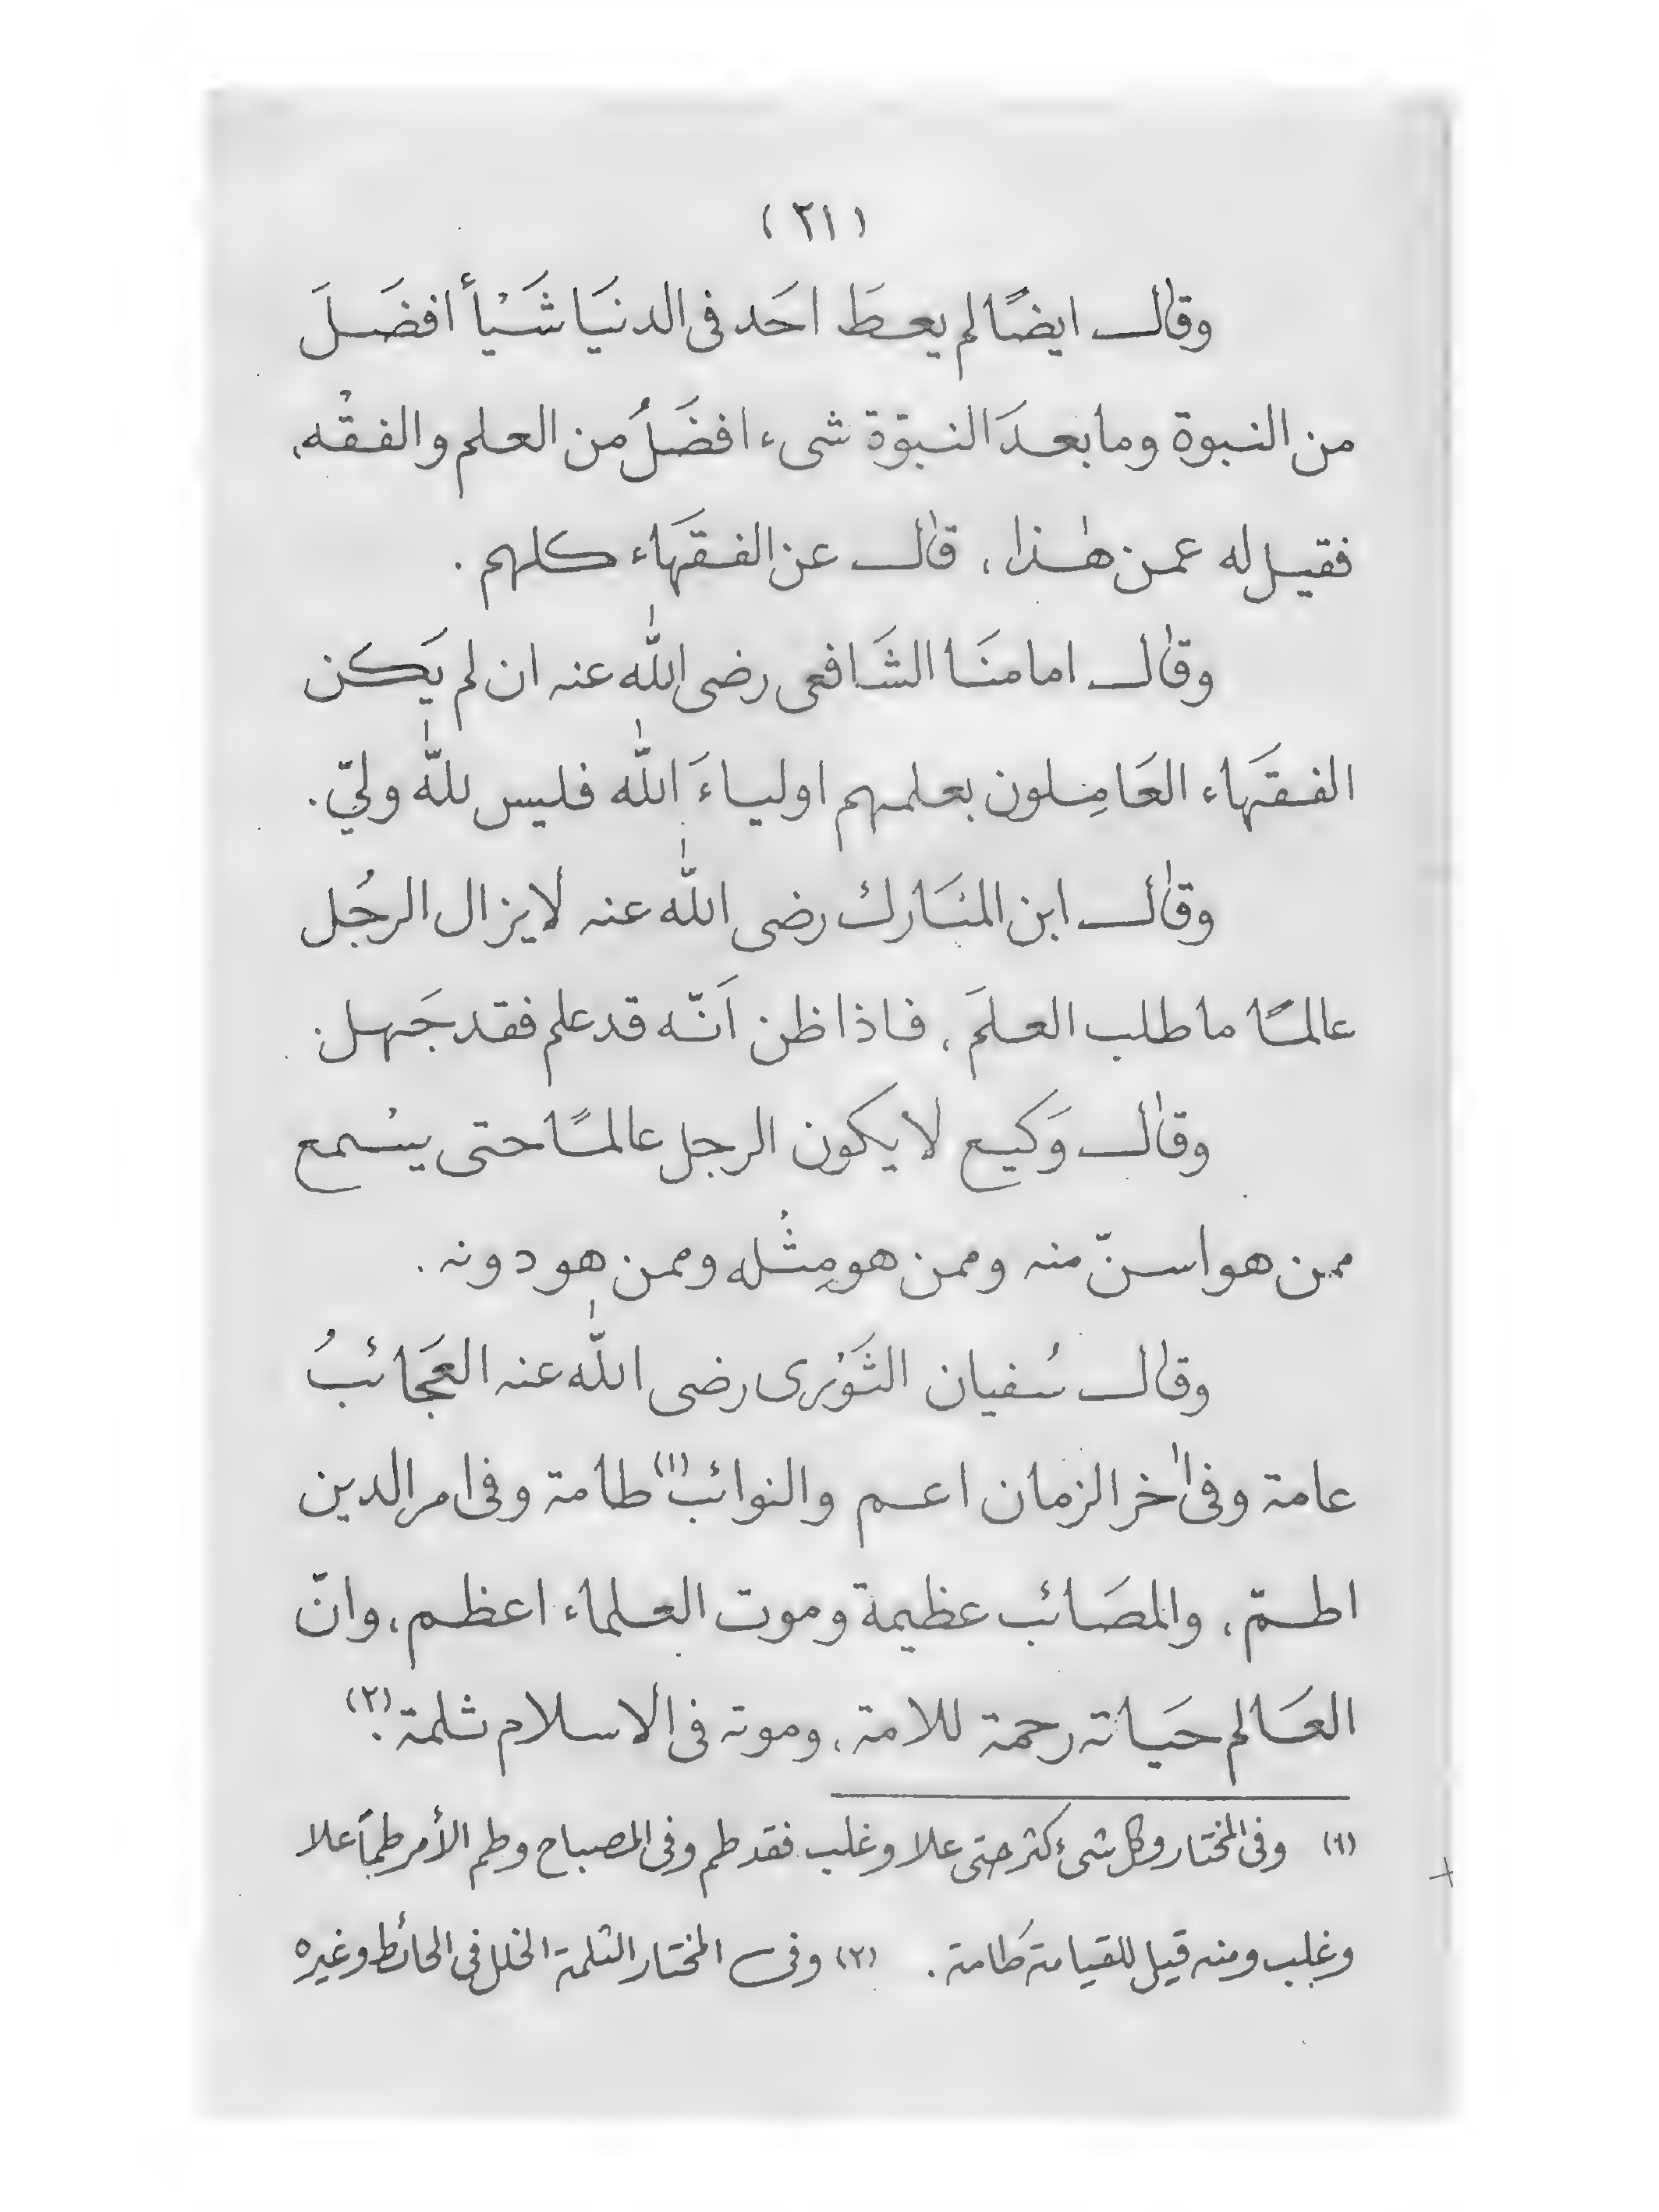 (٢١)
وقال ايضًا لم يعطَ احَد فى الدنيَا شَيْأ افضَلَ
من النبوة وما بعدَ النبوّة شىء افضَلُ من العلم والفقْه،
فقيل له عمن هٰذا، قال عن الفقهَاء كلهم.
وقال امامنَا الشَافعى رضى اللّٰه عنه ان لم يَكن
الفقهَاء العَامِلون بعلمهم اولياءَ اللّٰه فليس للّٰه ولىّ.
وقال ابن المبَارك رضى اللّٰه عنه لا يزال الرجُل
عالمًا ما طلب العلمَ، فاذا ظن اَنّه قد علم فقد جَهل.
وقال وَكيع لا يكون الرجل عالمًا حتى يسْمع
ممن هو اسنّ منه وممن هو مِثْله وممن هو دونه.
وقال سُفيان الثَوْرى رضى اللّٰه عنه العجَائبُ
عامة وفى اٰخر الزمان اعم والنوائب(١) طامة وفى امر الدين
اطمّ، والمصَائب عظيمة وموت العلماء اعظم، وانّ
العَالم حيَاته رحمة للامة، وموته فى الاسلام ثلمة.(٢)
(١) وفى المختار وكل شىء كثر حتى علا وغلب فقد طم وفى المصباح وطم الأمر طمًا علا
وغلب ومنه قيل للقيامة طَامة. (٢) وفى المختار الثلمة الخلل فى الحائط وغيره